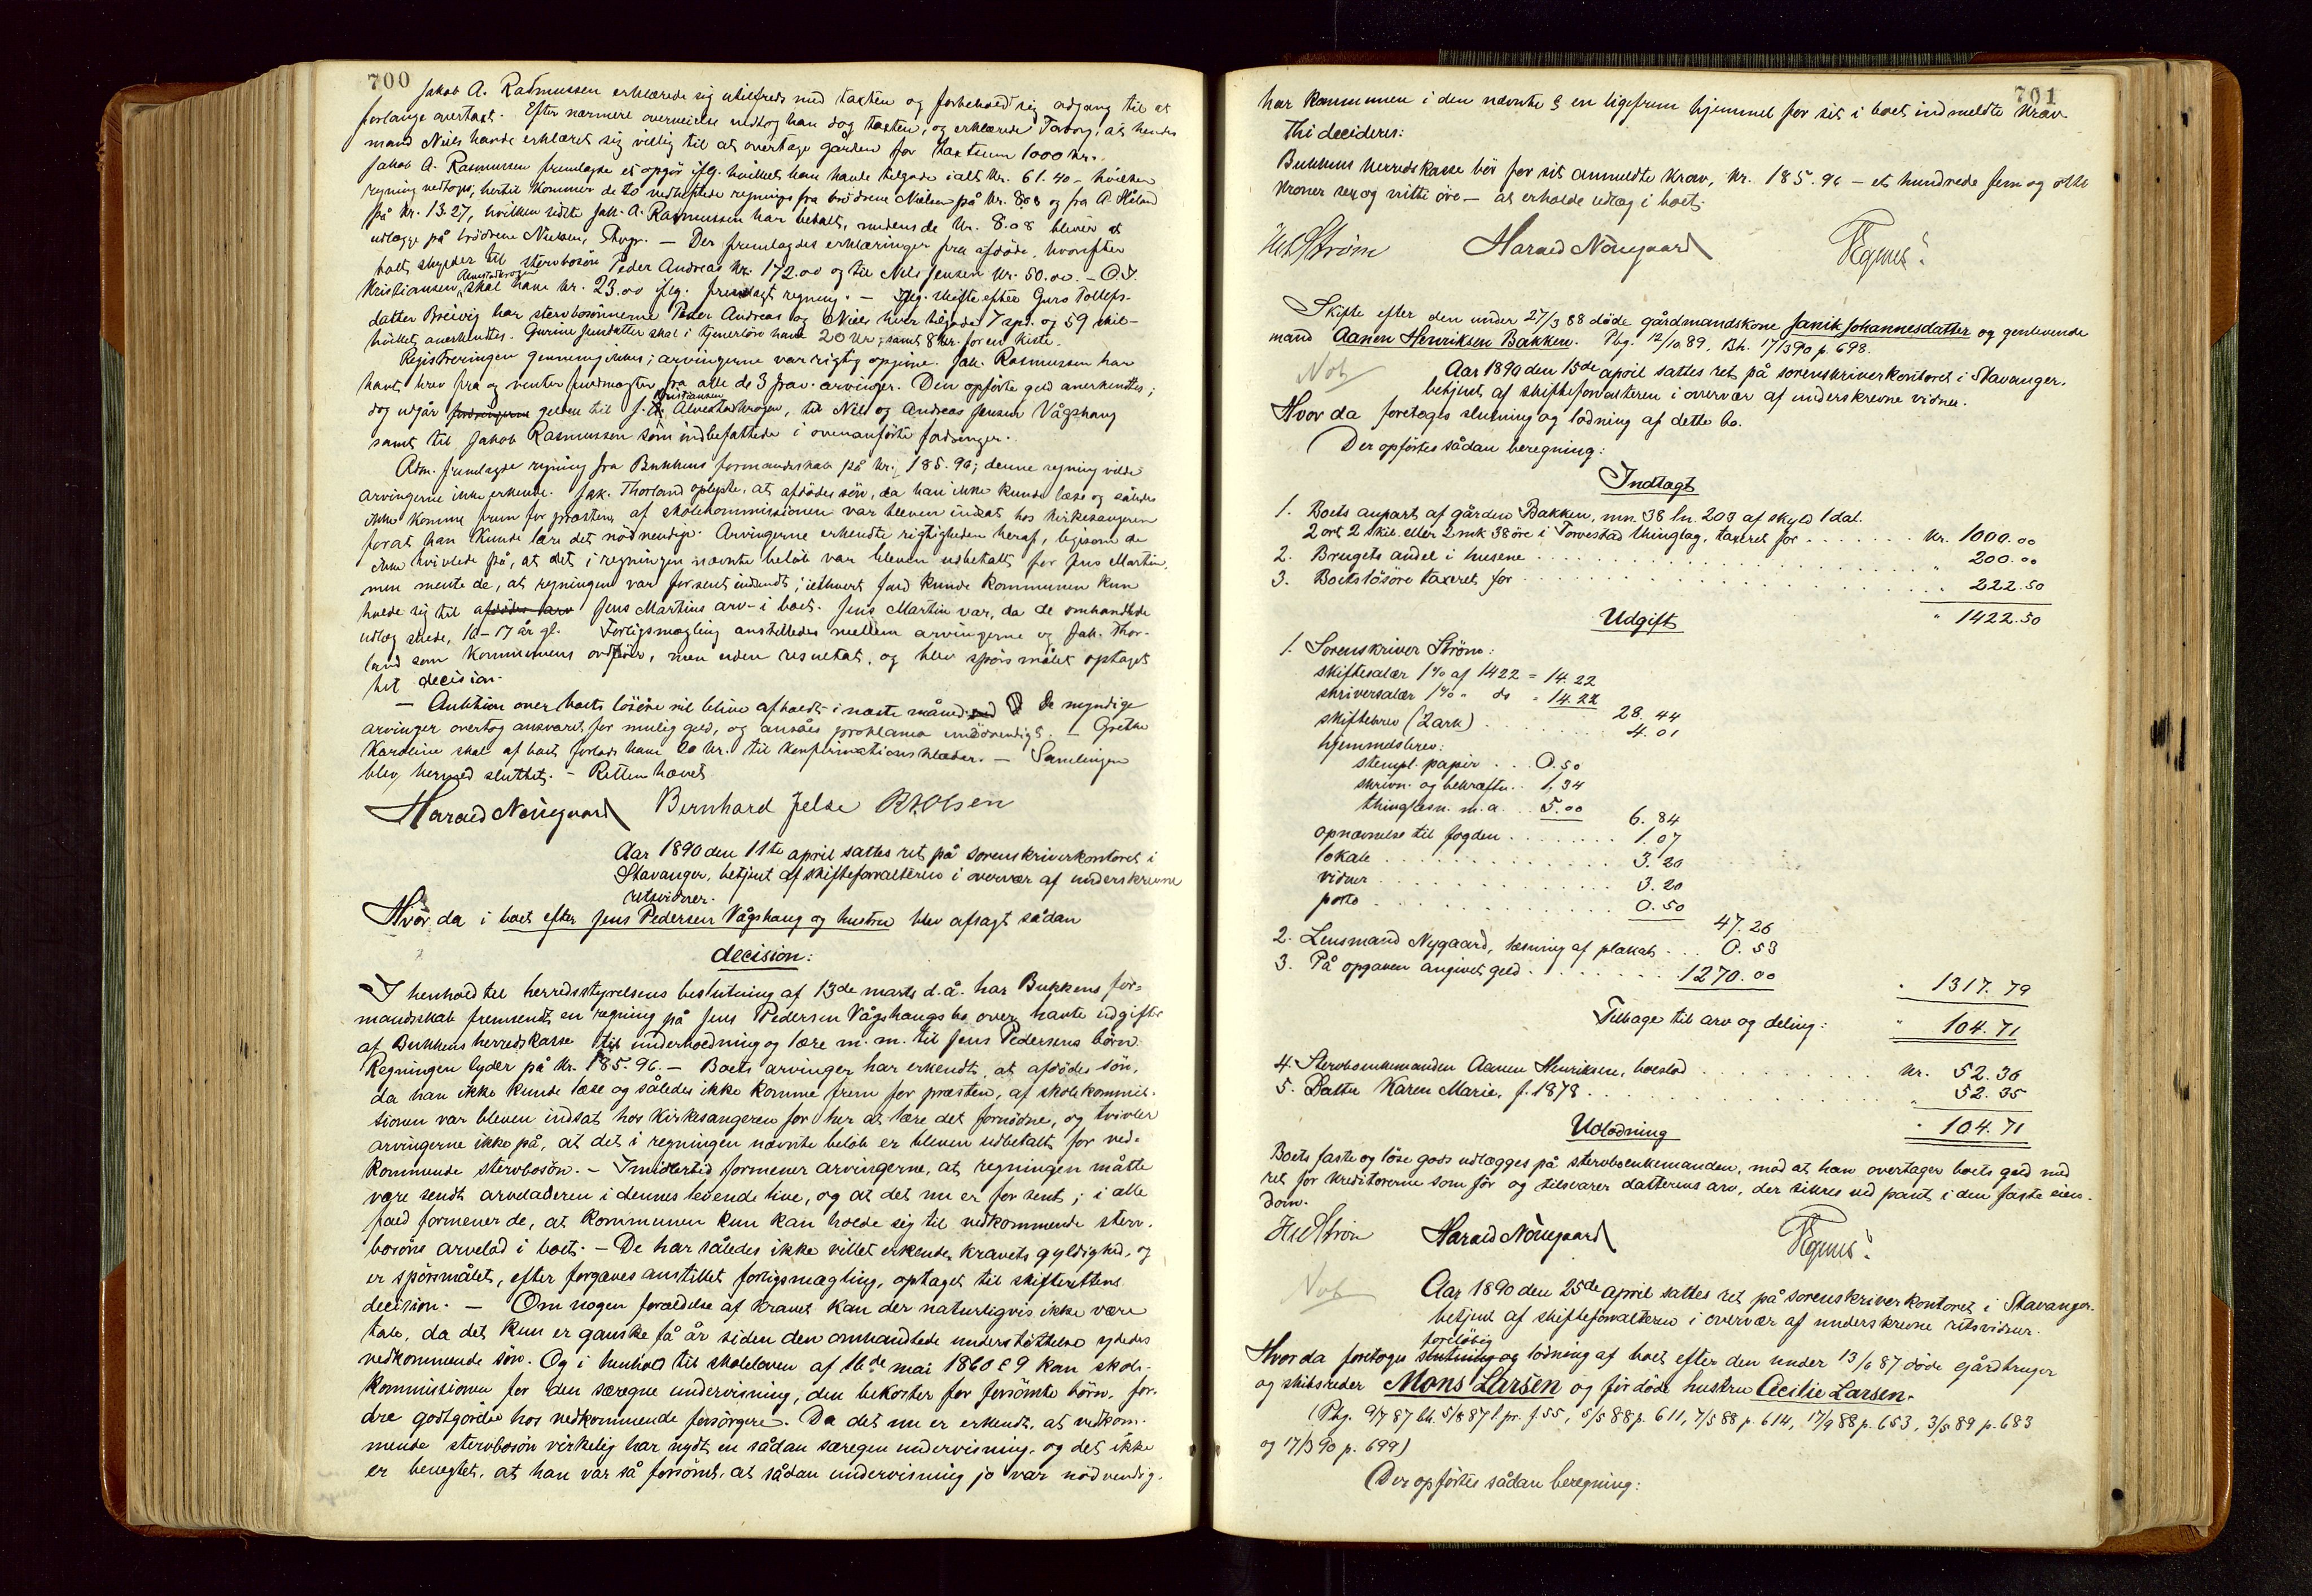 700
Jakob A. Rasmussen erklærede sig utilfreds med taxten og forbeholdt sig adgang til at
forlange overtaxt. Efter nærmere overveielse vedtog han dog taxten, og erklærede Torborg, at hendes
mand Niels havde erklæret sig villig til at overtage gården for taxtsum 1000 kr.
Jakob A. Rasmussen fremlagde et opgjör iflg. hvilket han havde tilgode ialt kr. 61.40 – hvilken
regning vedtoges; hertil kommer de to vedheftede regninger fra brödrene Nielsen på kr. 8.08 og fra A. Håland
på kr. 13.27, hvilken sidste Jak. A. Rasmussen har betalt, medens de kr. 8.08 bliver at
udlægge på brödrene Nielsen, . – Der fremlagdes erklæringer fra afdöde, hvorefter
boet skylder til stervbosön Peder Andreas kr. 172.00 og til Nils Jensen kr. 50.00. – O. J.
Kristiansen, Alvestadkrogen skal have kr. 23.00 iflg. fremlagt regning. – Iflg. skifte efter Guro Tollefs-
datter Breivig har stervbosönnerne Peder Andreas og Niels hver tilgode 7 spd. og 59 skil-
hvilket anerkendtes. Gurine Jensdatter skal i tjenerlön have 20 kr., samt 8 kr. for en kiste.
Registreringen gennemgikkes; arvingerne var rigtig opgivne. Jak. Rasmussen har
havt brev fra og venter fuldmagter fra alle de 3 frav. arvinger. Den opförte gæld anerkendtes;
dog udgår fordringerne gælden til J. Kristiansen Alvestadkrogen, til Nils og Andreas Jensen Vågshaug
samt til Jakob Rasmussen som indbefattede i ovenanförte fordringer.
Adm. fremlagde regning fra Bukkens formandskab på kr. 185.96; denne regning vilde
arvingerne ikke erkende. Jak. Thorland oplyste, at afdödes sön, da han ikke kunde læse og således
ikke komme frem for præsten, af skolekommissionen var bleven indsat hos kirkesangeren
forat han kunde lære det nödvendige. Arvingerne erkendte rigtigheden heraf, ligesom de
ikke tvivlede på, at det i regningen nævnte belöb var bleven udbetalt for Jens Martin,
men mente de, at regningen var for sent indsendt; i ethvert fald kunde kommunen kun
holde sig til afdödes arv Jens Martins arv i boet. Jens Martin var, da de omhandlede
udlæg skede, 16–17 år gl. Forligsmægling anstilledes mellem arvingerne og Jak. Thor-
land som kommunens ordförer, men uden resultat, og blev spörsmålet optaget
til decision.
– Auktion over boets lösöre vil blive afholdt i næste måned. De myndige
arvinger overtog ansvaret for mulig gæld, og ansåes proklama unödvendigt. – Grethe
Karoline skal af boet forlods have 20 kr. til konfirmationsklæder. – Samlingen
blev hermed sluttet. – Retten hævet
Harald Nörregaard Bernhard Jelse R. Olsen
Aar 1890 den 11te april sattes ret på sorenskriverkontoret i
Stavanger, betjent af skifteforvalteren i overvær af underskrevne
retsvidner.
Hvor da i boet efter Jens Pedersen Vågshaug og hustru blev afsagt sådan
decision:
I henhold til herredsstyrelsens beslutning af 13de marts d.å. har Bukkens for-
mandskab fremsendt en regning på Jens Pedersen Vågshaugs bo over havte udgifter
af Bukkens herredskasse til underholdning og lære m. m. til Jens Pedersens börn.
Regningen lyder på kr. 185.96. – Boets arvinger har erkendt, at afdödes sön,
da han ikke kunde læse og således ikke komme frem for præsten, af skolekommis-
sionen var bleven indsat hos kirkesangeren for her at lære det fornödne, og tvivler
arvingerne ikke på, at det i regningen nævnte belöb er bleven udbetalt for ved-
kommende stervbosön. – Imidlertid formener arvingerne, at regningen måtte
være sendt arveladeren i dennes levende live, og at det nu er for sent; i alle
fald formener de, at kommunen kun kan holde sig til vedkommende sterv-
bosöns arvelod i boet. – De har således ikke villet erkende kravets gyldighed, og
er spörsmålet, efter forgæves anstillet forligsmægling, optaget til skifterettens
decision. – Om nogen forældelse af kravet kan der naturligvis ikke være
tale, da det kun er ganske få år siden den omhandlede understöttelse ydedes
vedkommende sön. Og i henhold til skoleloven af 16de mai 1860 § 9 kan skole-
kommissionen for den særegne undervisning, den bekoster for forsömte börn, for-
dre godtgörelse hos vedkommende forsörgere. Da det nu er erkendt, at vedkom-
mende stervbosön virkelig har nydt en sådan særegen undervisning, og det ikke
er benegtet, at han var så forsömt, at sådan undervisning jo var nödvendig,
701
har kommunen i den nævnte § en ligefrem hjemmel for sit i boet indmeldte krav
Thi decideres:
Bukkens herredskasse bör for sit anmeldte krav, kr. 185.96 – et hundrede fem og otti
kroner sex og nitti öre – at erholde udlæg i boet.
Ström Harald Nörregaard
Skifte efter den under 27/3 88 döde gårdmandskone Janik Johannesdatter og genlevende
mand Aanen Henriksen Bakken. Pbg. 12/10 89, Bh. 17/3 90 p. 698.
Not
Aar 1890 den 15de april sattes ret på sorenskriverkontoret i Stavanger,
betjent af skifteforvalteren i overvær af underskrevne vidner.
Hvor da foretoges slutning og lodning af dette bo.
Der opförtes sådan beregning:
Indtægt
1. Boets anpart af gården Bakken, mn. 38 ln. 203 af skyld 1 dal.
2 ort 2 skil. eller 2 mk 38 öre i Torvestad thinglag, taxeret for . . . . . . . kr. 1000.00
2. Brugets andel i husene . . . . . . . . . . . . " 200.00
3. Boets lösöre taxeret for . . . . . . . . . . . . " 222.50
" 1422.50
Udgift
1. Sorenskriver Ström:
skiftesalær 1% af 1422 = 14.22
skriversalær 1% " do " 14.22
28.44
skiftebrev (2 ark) . . . . . . . 4.01
hjemmelsbrev:
stempl. papir . . . 0.50
skrivn. og bekræftn. . 1.34
thinglæsn. m. a. . . 5.00
6.84
opnævnelse til fogden . . . . . . . 1.07
lokale . . . . . . . . . . 3.20
vidner . . . . . . . . . . 3.20
porto . . . . . . . . . . 0.50
47.26
2. Lensmand Nygaard, læsning af plakat . . . 0.53
3. På opgaven angivet gæld . . . . . . . . 1270.00
" 1317.79
Tilbage til arv og deling: " 104.71
4. Stervboenkemanden Aanen Henriksen, boeslod . . . . . . . kr. 52.36
5. Datter Karen Marie, f. 1878 . . . . . . . . . . " 52.35
" 104.71
Udlodning
Boets faste og löse gods udlægges på stervboenkemanden, mod at han overtager boets gæld med
ret for kreditorerne som för og tilsvarer datterens arv, der sikres ved pant i den faste eien-
dom.
Ström Harald Nörregaard
Not
Aar 1890 den 25de april sattes ret på sorenskriverkontoret i Stavanger
betjent af skifteforvalteren i overvær af underskrevne retsvidner.
Hvor da foretoges foreløbig slutning og lodning af boet efter den under 13/6 87 döde gårdbruger
og skibsreder Mons Larsen og för döde hustru Cecilie Larsen.
(Pbg. 9/7 87 bh. 5/8 87 l. pr. f. 55, 5/5 88 p. 611, 7/5 88 p. 614, 17/9 88 p. 653, 3/5 89 p. 683
og 17/3 90 p. 699)
Der opförtes sådan beregning: